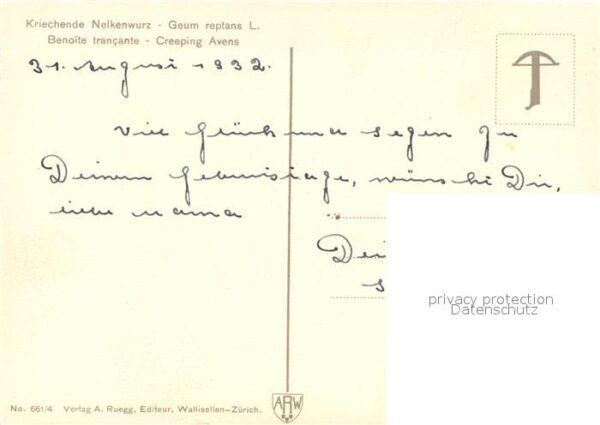 Kriechende Nelkenwurz - Geum reptans L.
Benoîte trançante - Creeping Avens
31. August 1932.
Viel Glück und Segen zu
Deinem Geburtstage, wünscht Dir,
liebe Mama
Dein
privacy protection
Datenschutz
No. 661/4 Verlag A. Ruegg, Editeur, Wallisellen-Zürich.
ARW